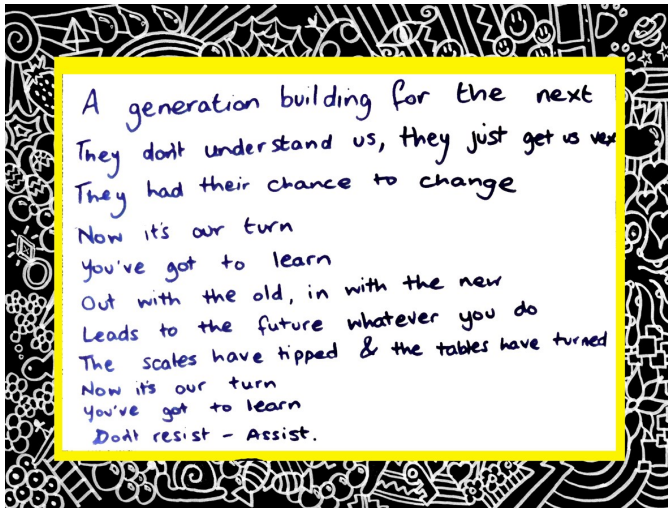 A generation building for the next
They don't understand us, they just get us vex
They had their chance to change
Now it's our turn
You've got to learn
Out with the old, in with the new
Leads to the future whatever you do
The scales have tipped & the tables have turned
Now it's our turn
You've got to learn
Don't resist - Assist.